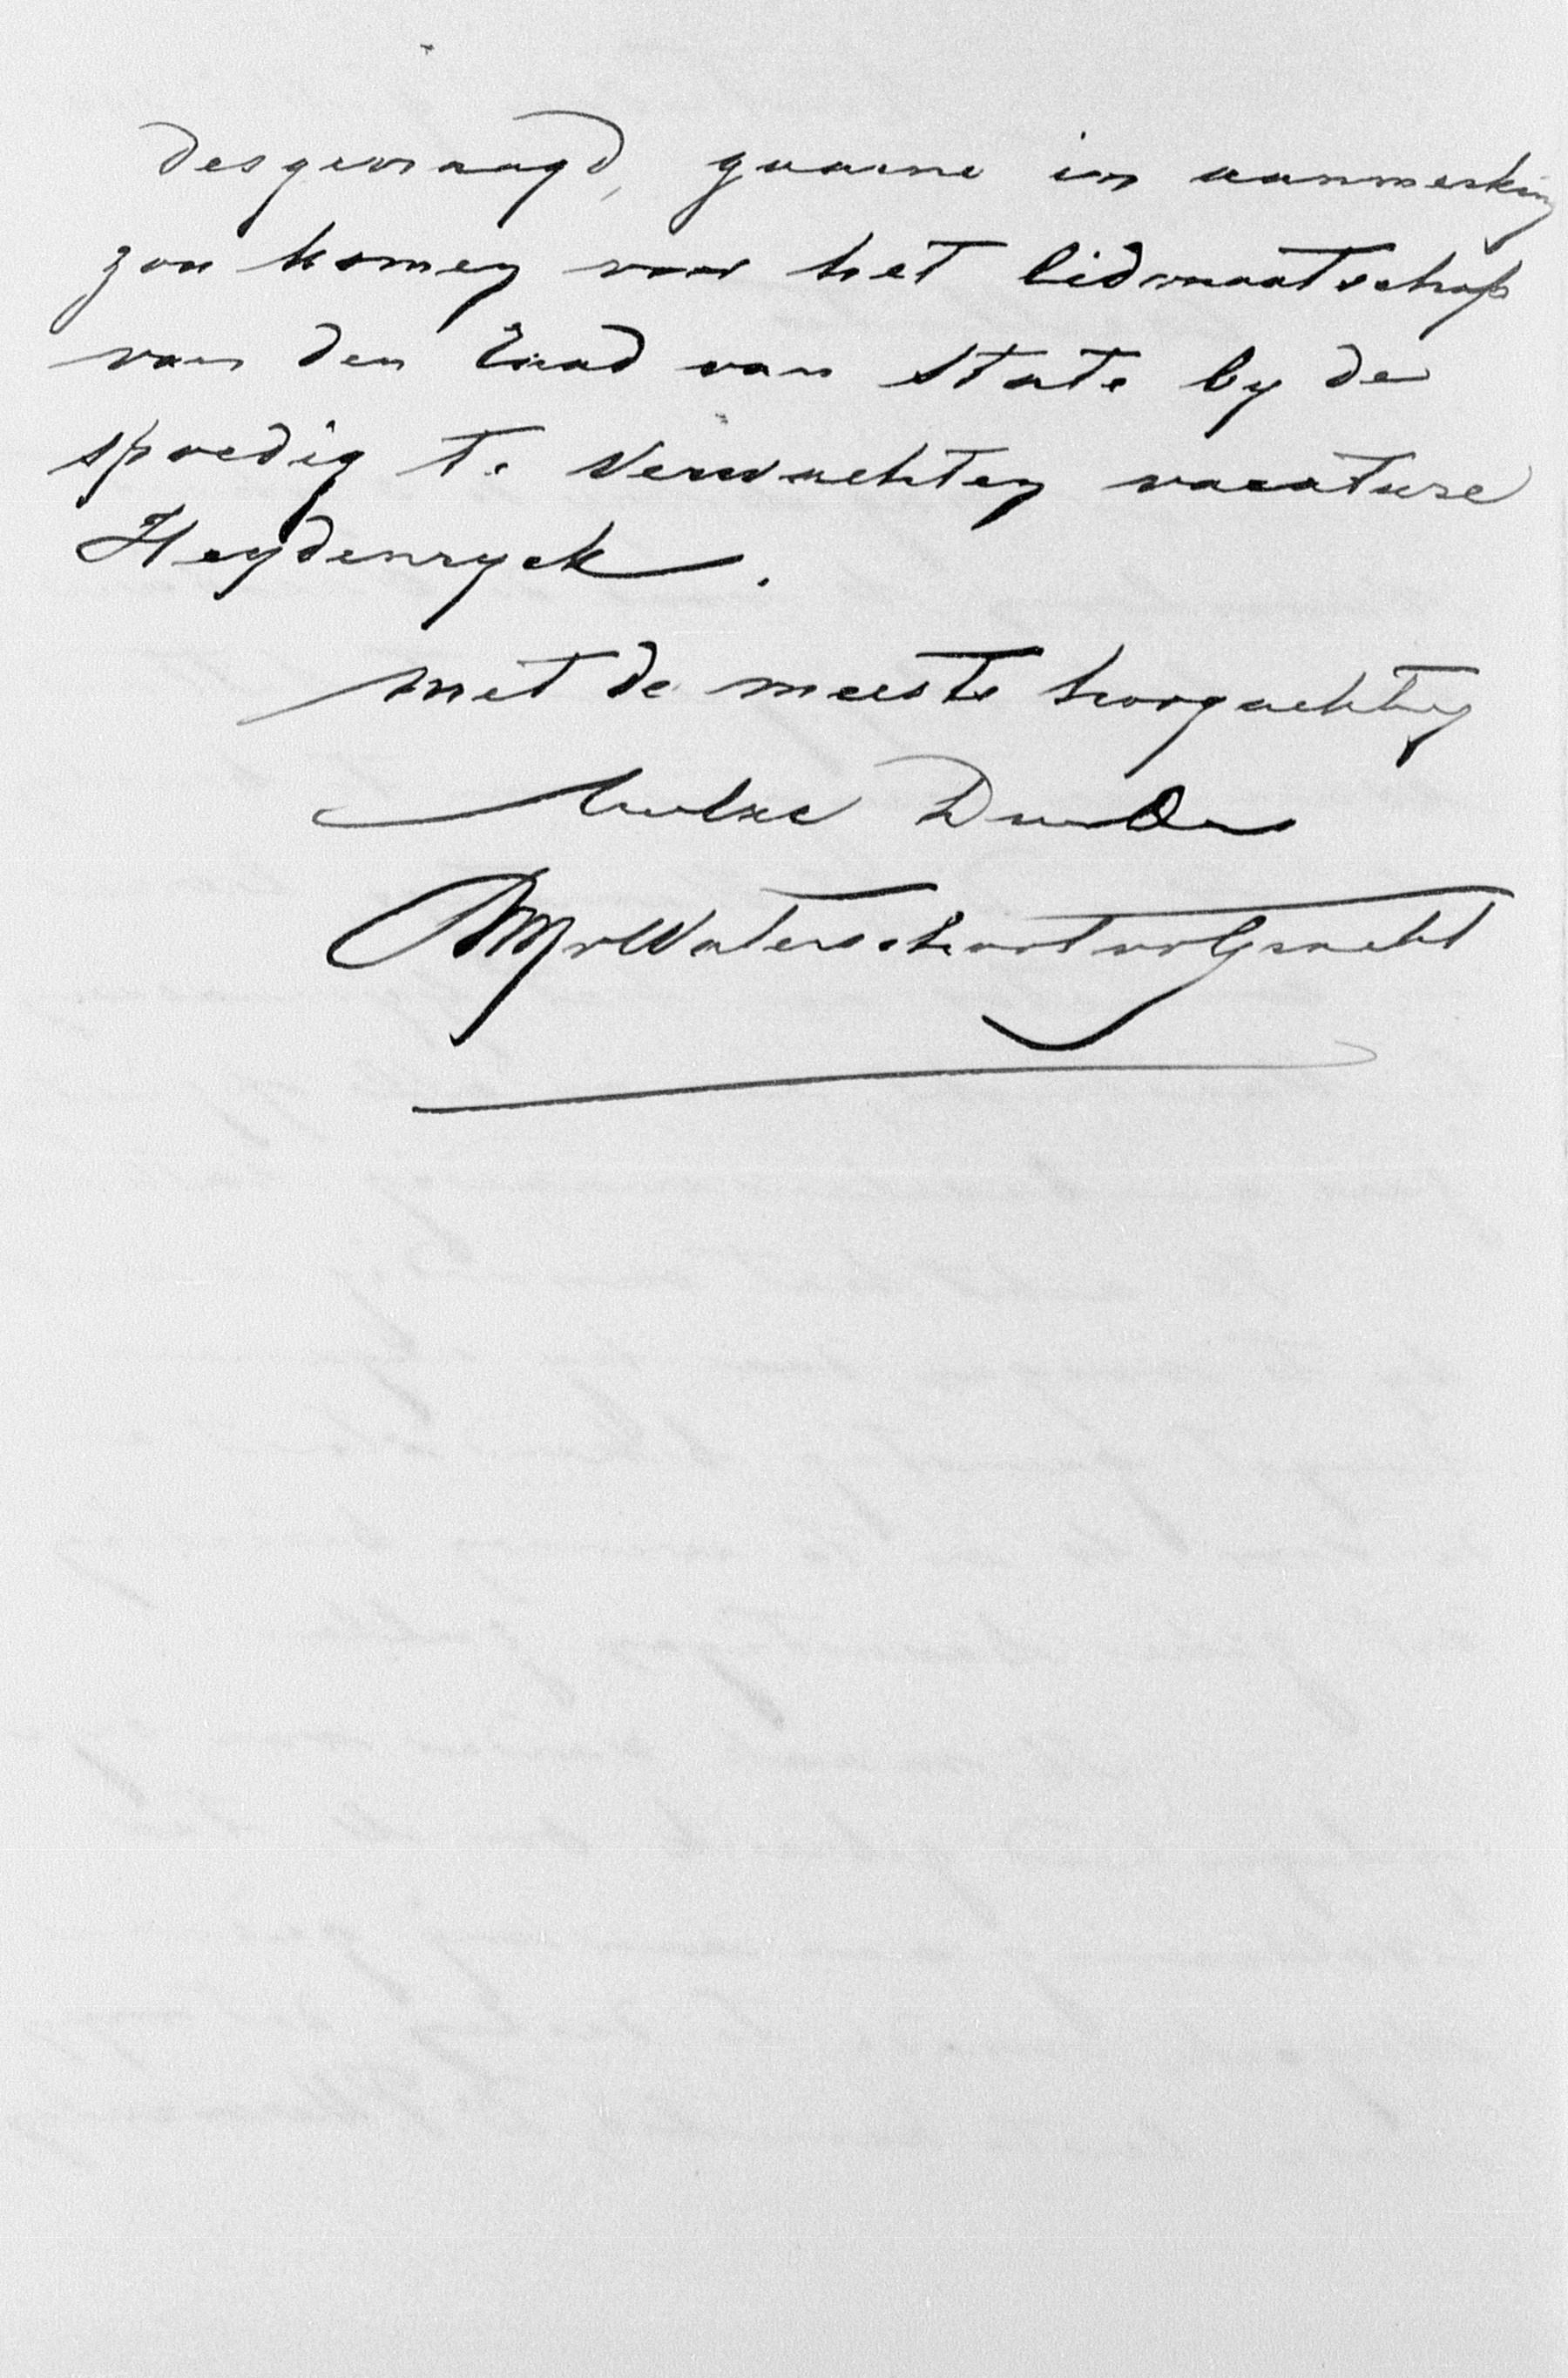 desgevraagd, gaarne in aanmerking
zou komen voor het lidmaatschap
van den Raad van State by de
spoedig te verwachten vacature
Heydenryck.
met de meeste hoogachting
Uwe Dw Dr
WMJvWaterschootvdGracht